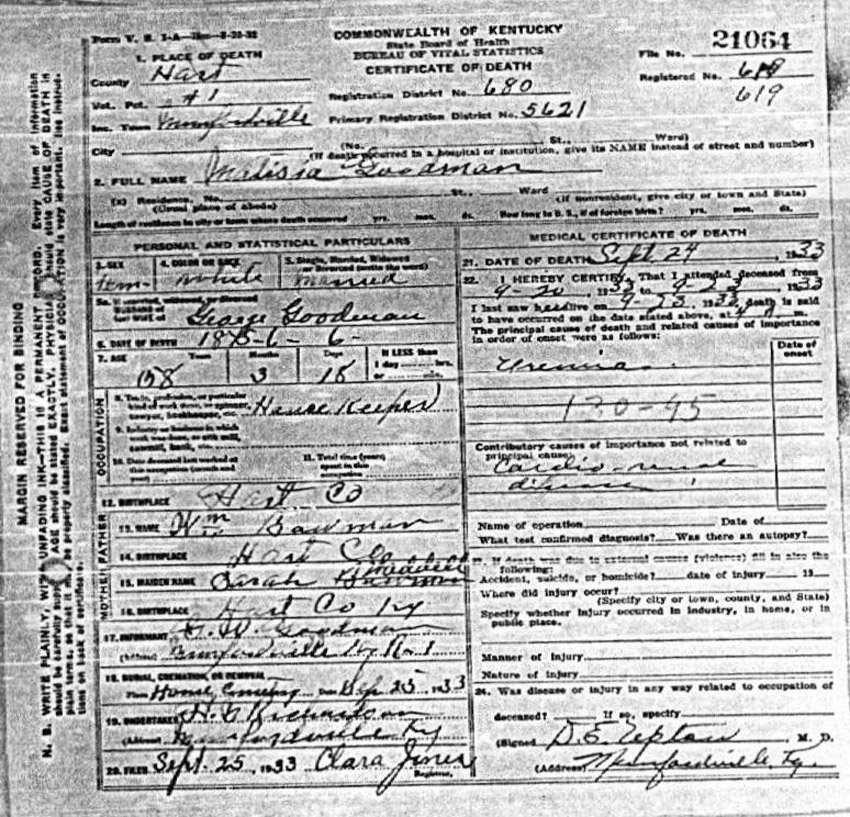 Form V. S. 1-A
COMMONWEALTH OF KENTUCKY
State Board of Health
BUREAU OF VITAL STATISTICS
CERTIFICATE OF DEATH
File No. 21064
Registered No. 618
619
1. PLACE OF DEATH
County Hart
Vot. Pct. #1
Inc. Town Munfordville
City
Registration District No. 680
Primary Registration District No. 5621
(No. St., Ward)
(If death occurred in a hospital or institution, give its NAME instead of street and number)
2. FULL NAME Malisia Goodman
(a) Residence, No. St., Ward
(Usual place of abode) (If nonresident, give city or town and State)
Length of residence in city or town where death occurred yrs. mos. ds. How long in U. S., if of foreign birth? yrs. mos. ds.
PERSONAL AND STATISTICAL PARTICULARS
3. SEX fem-
4. COLOR OR RACE white
5. Single, Married, Widowed or Divorced (write the word) married
5a. If married, widowed or divorced
Husband of
(or) WIFE of George Goodman
6. DATE OF BIRTH 1875-6-6-
7. AGE Years 58 Months 3 Days 18 If LESS than
1 day hrs.
or
OCCUPATION
8. Trade, profession, or particular
kind of work done, as spinner,
sawyer, bookkeeper, etc. House Keeper
9. Industry or business in which
work was done, as silk mill,
sawmill, bank, etc.
10. Date deceased last worked at
this occupation (month and
year)
11. Total time (years)
spent in this
occupation
12. BIRTHPLACE Hart Co
FATHER
13. NAME Wm Bowman
14. BIRTHPLACE Hart Co
MOTHER
15. MAIDEN NAME Sarah Bowman
16. BIRTHPLACE Hart Co Ky
17. INFORMANT Goodman
(Address) Munfordville Ky R. 1
18. BURIAL, CREMATION, OR REMOVAL
Place Home Cemetery Date Sep 25 1933
19. UNDERTAKER
(Address) Munfordville Ky
20. FILED Sept. 25, 1933 Clara Jones
Registrar.
MEDICAL CERTIFICATE OF DEATH
21. DATE OF DEATH Sept 24, 1933
22. I HEREBY CERTIFY, That I attended deceased from
9-20 1933 to 9-23, 1933
I last saw her alive on 9-23, 1933 death is said
to have occurred on the date stated above, at 4 m.
The principal cause of death and related causes of importance
in order of onset were as follows:
Date of
onset
Uremia
130-95
Contributory causes of importance not related to
principal cause:
Cardio-renal
disease
Name of operation Date of
What test confirmed diagnosis? Was there an autopsy?
23. If death was due to external causes (violence) fill in also the
following:
Accident, suicide, or homicide? date of injury 19
Where did injury occur?
(Specify city or town, county, and State)
Specify whether injury occurred in industry, in home, or in
public place.
Manner of injury
Nature of injury
24. Was disease or injury in any way related to occupation of
deceased? If so, specify
(Signed) Upton M. D.
(Address) Munfordville Ky.
MARGIN RESERVED FOR BINDING
N. B. WRITE PLAINLY, WITH UNFADING INK—THIS IS A PERMANENT RECORD. Every item of information
should be carefully supplied. AGE should be stated EXACTLY. PHYSICIANS should state CAUSE OF DEATH in
plain terms, so that it may be properly classified. Exact statement of OCCUPATION is very important. See instruc-
tions on back of certificate.